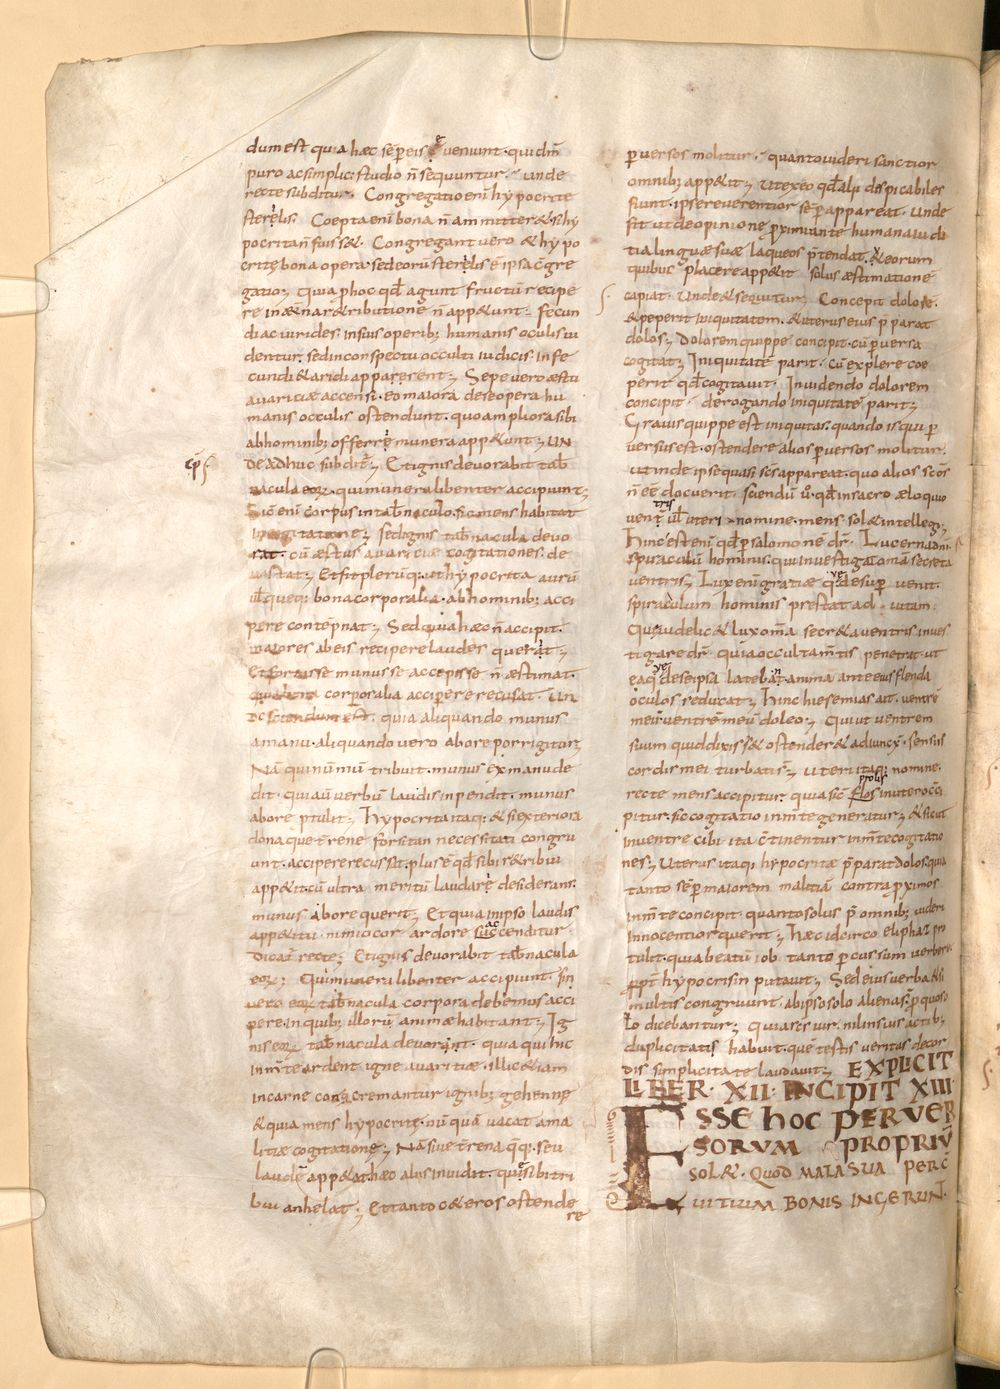 dum est quia hæc sep eis eveniunt · qui dm̄
puro ac simplici studio n̄ sequuntur · unde
recte subditur · Congregatio enī hypocrite
sterelis · Coepta enī bona n̄ ammitter& · si hy
pocrita n̄ fuiss& · Congregant vero & hypo
critę bona opera sed eorū sterelis ē ipsa c̄gre
gatio; Quia p hoc qđ agunt fructū recipe
re in æterna r&ributione n̄ app&unt · fecun
di ac virides · in suis operib; humanis oculis vi
dentur · sed in conspectu occulti iudicis · infe
cundi & aridi apparescent; Sepe vero æstu
avaritiæ accensi · eo maiora de se opera hu
manis occulis ostendunt · quo ampliora sibi
ab hominib; offerre munera app&unt; Un
de adhuc subdit̄; Et ignis devorabit tab̄
nacula eoꝝ · qui munera libenter accipiunt;
Sic enī corpus in tab̄naculo · sic mens habitat
in cogitatione; sed ignis tab̄nacula devo
rat · cū æstus avaritiæ cogitationes · de
vastat; Et fit plerūq; ut hypocrita aurū
ul̄ queq; bona corporalia · ab hominib; acci
pere contēpnat; Sed quia hæc n̄ accipit ·
maiores ab eis recipere laudes querit;
Et fortasse munus se accepisse n̄ æstimat ·
corporalia accipere recusat · Un
de sciendum est · quia aliquando munus
a manu · aliquando vero ab ore porrigitur;
Nā qui nūmū tribuit · munus ex manu de
dit · qui aū verbū laudis inpendit · munus
ab ore ptulit; Hypocrita itaq; & si exteriora
dona que t̄rene forsitan necessitati congru
unt · accipere recusat · plus ē qđ sibi r&ribui
app&it · cū ultra meritū laudare desiderans ·
munus ab ore querit; Et quia in ipso laudis
app&itu · nimio cor ardore succenditur ·
Dicat̄ recte; Et ignis devorabit tab̄nacula
eoꝝ; Qui munera libenter accipiunt ·
vero eoꝝ tab̄nacula corpora debemus acci
pere · in quib; illorū animæ habitant; Ig
nis eoꝝ tab̄nacula devorat · quia qui hic
in m̄te ardent igne avaritiæ · illic &iam
in carne concremantur ignib; gehenne
& quia mens hypocrite · nū quā vacat a ma
litiæ cogitatione; Nā sive t̄rena q̄q; seu
laudē app&at · hæc aliis invidit · que sibi tri
bui anhelat; Et tanto c&eros ostende
re
eps̄
pversos molitur · quanto videri sanctior
omnib; app&it; Ut ex eo qđ alii despicabiles
fiunt · ipse reverentior sep appareat · Unde
fit ut de opinione pximi ante humana iudi
tia linguæ suæ laqueos p̄tendat · & eorum
quibus placere app&it solus æstimatione
capiat · Unde & sequitur; Concepit dolorē ·
& peperit iniquitatem · & uterus eius p̄parat
dolos; Dolorem quippe concipit · cū pversa
cogitat; Iniquitatē parit · cū explere coe
perit qđ cogitavit · Invidendo dolorem
concipit · derogando iniquitatē parit;
Gravis quippe est iniquitas · quando is qui p
versus est · ostendere alios pversos molitur ·
ut inde ipse quasi sc̄s appareat · quo alios sc̄os
n̄ eē docuerit · sciendū ū · qđ in sacro æloquio
vent̄ris ul̄ uteri nomine · mens · sol& intellegi;
Hinc est enī qđ p salomonē dr̄ · Lucerna dn̄i ·
spiraculū hominis · qui investigat om̄ia secreta
ventris; Lux enī gratiæ que desup venit ·
spiraculum hominis prestat ad · vitam ·
Que videlic& lux om̄a secr&a ventris inves
tigare dr̄ · quia occulta m̄tis penetrat · ut
ea que de se ipsa latebant · anima ante eius flenda
oculos reducat; Hinc hieremias ait · ventrē
meū · ventrē meū doleo; Qui ut ventrem
suum quid dixiss& ostender& adiunxit · sensus
cordis mei turbati st̄; Uteri itaq; nomine ·
recte mens accipitur · quia sic̄ prolis in utero c̄ci
pitur · sic cogitatio in m̄te generatur; & sicut
in ventre cibi · ita c̄tinentur in m̄te cogitatio
nes; Uterus itaq; hypocritæ p̄parat dolos · quia
tanto sep maiorem malitiā contra pximos
in m̄te concipit · quanto solus p̄ omnib; videri
innocentior querit; Hæc idcirco eliphaz in
tulit · quia beatū iob tanto pcussum verbere
ppt̄ hypocrisin putavit; Sed eius verba & si
multis congruunt · ab ipso solo aliena st̄ p quo so
lo dicebantur; Quia sc̄s vir · nil in suis actib;
duplicitatis habuit · quē testis veritas de cor
dis simplicitate laudavit; EXPLICIT
LIBER · XII · INCIPIT XIII ·
ESSE HOC PERVER
SORUM PROPRIŪ
SOL& · QUOD MALA SUA PER C
VITIUM BONIS INGERUNT